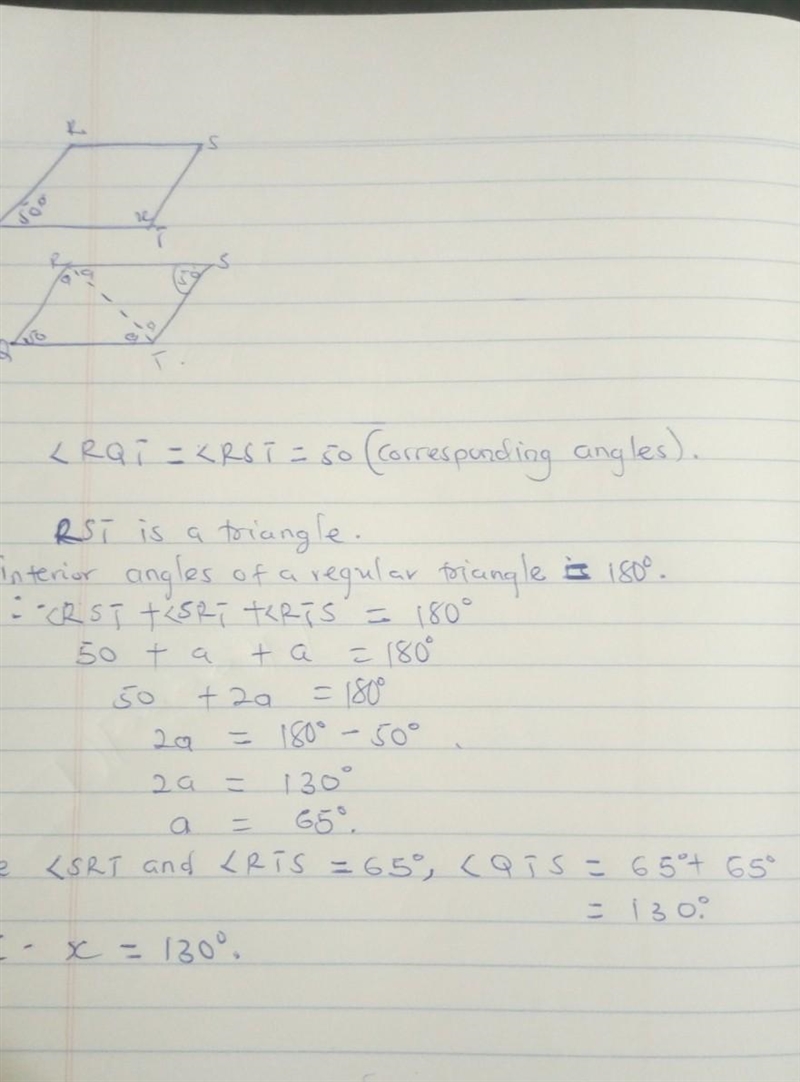 R S
50°
x
T
R S
a a 50
50 a a
Q T
<RQT = <RST = 50 (corresponding angles).
RST is a triangle.
interior angles of a regular triangle is 180°.
∴ <RST + <SRT + <RTS = 180°
50 + a + a = 180°
50 + 2a = 180°
2a = 180° - 50°
2a = 130°
a = 65°.
<SRT and <RTS = 65°, <QTS = 65° + 65°
= 130°.
x = 130°.